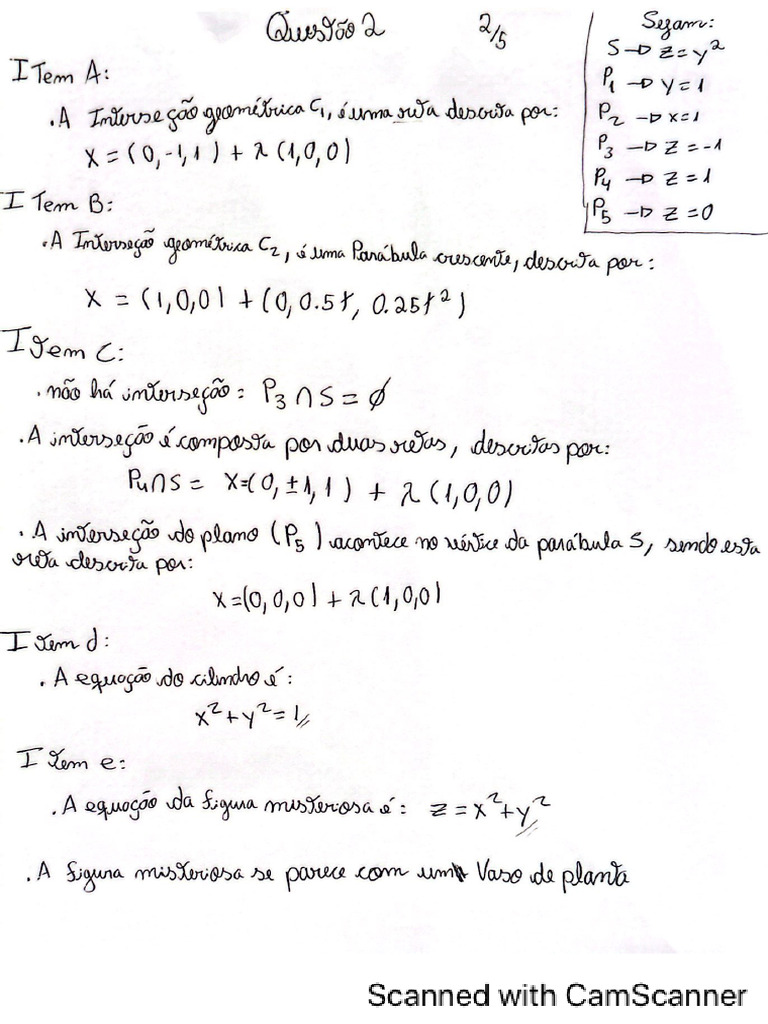 Questão 2 2/5
Sejam:
S → z = y²
P₁ → y = 1
P₂ → x = 1
P₃ → z = -1
P₄ → z = 1
P₅ → z = 0
ITem A:
. A Interseção geométrica C₁, é uma reta descrita por:
X = (0, -1, 1) + λ (1, 0, 0)
ITem B:
. A Interseção geométrica C₂, é uma Parábula crescente, descrita por:
X = (1, 0, 0) + (0, 0.5t, 0.25t²)
Item C:
. não há interseção: P₃ ∩ S = ∅
. A interseção é composta por duas retas, descritas por:
P₄ ∩ S = X = (0, ±1, 1) + λ (1, 0, 0)
. A interseção do plano (P₅) acontece no vértice da parábula S, sendo esta
reta descrita por:
X = (0, 0, 0) + λ (1, 0, 0)
Item d:
. A equação do cilindro é:
x² + y² = 1//
Item e:
. A equação da figura misteriosa é: z = x² + y²//
. A figura misteriosa se parece com um Vaso de planta
Scanned with CamScanner